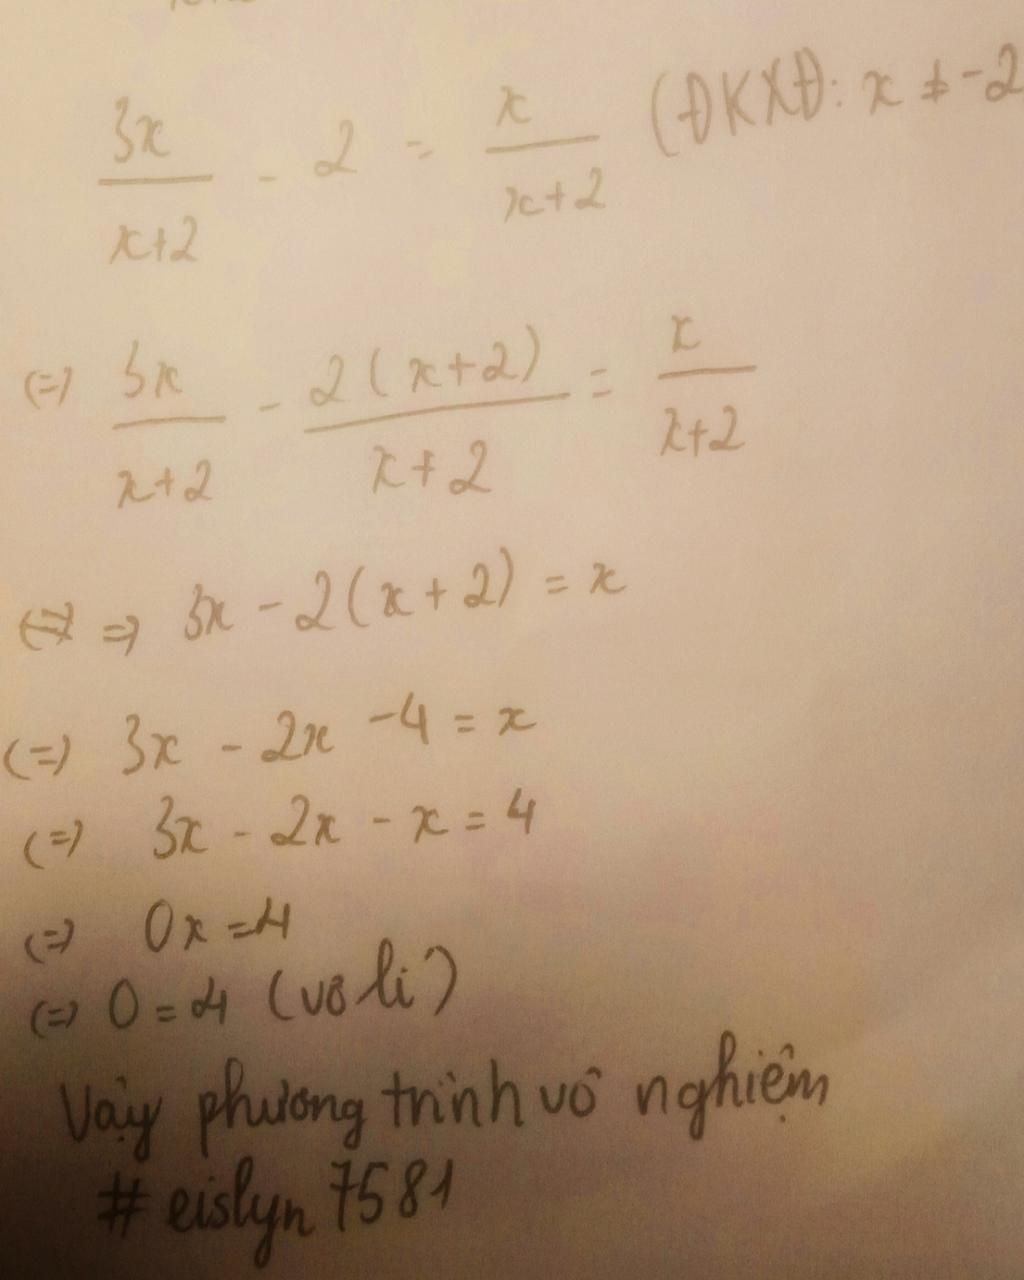 3x/(x+2) - 2 = x/(x+2) (ĐKXĐ: x ≠ -2
(=) 3x/(x+2) - 2(x+2)/(x+2) = x/(x+2)
=) 3x - 2(x+2) = x
(=) 3x - 2x - 4 = x
(=) 3x - 2x - x = 4
(=) 0x = 4
(=) 0 = 4 (vô lí)
Vậy phương trình vô nghiệm
# eislyn 7581